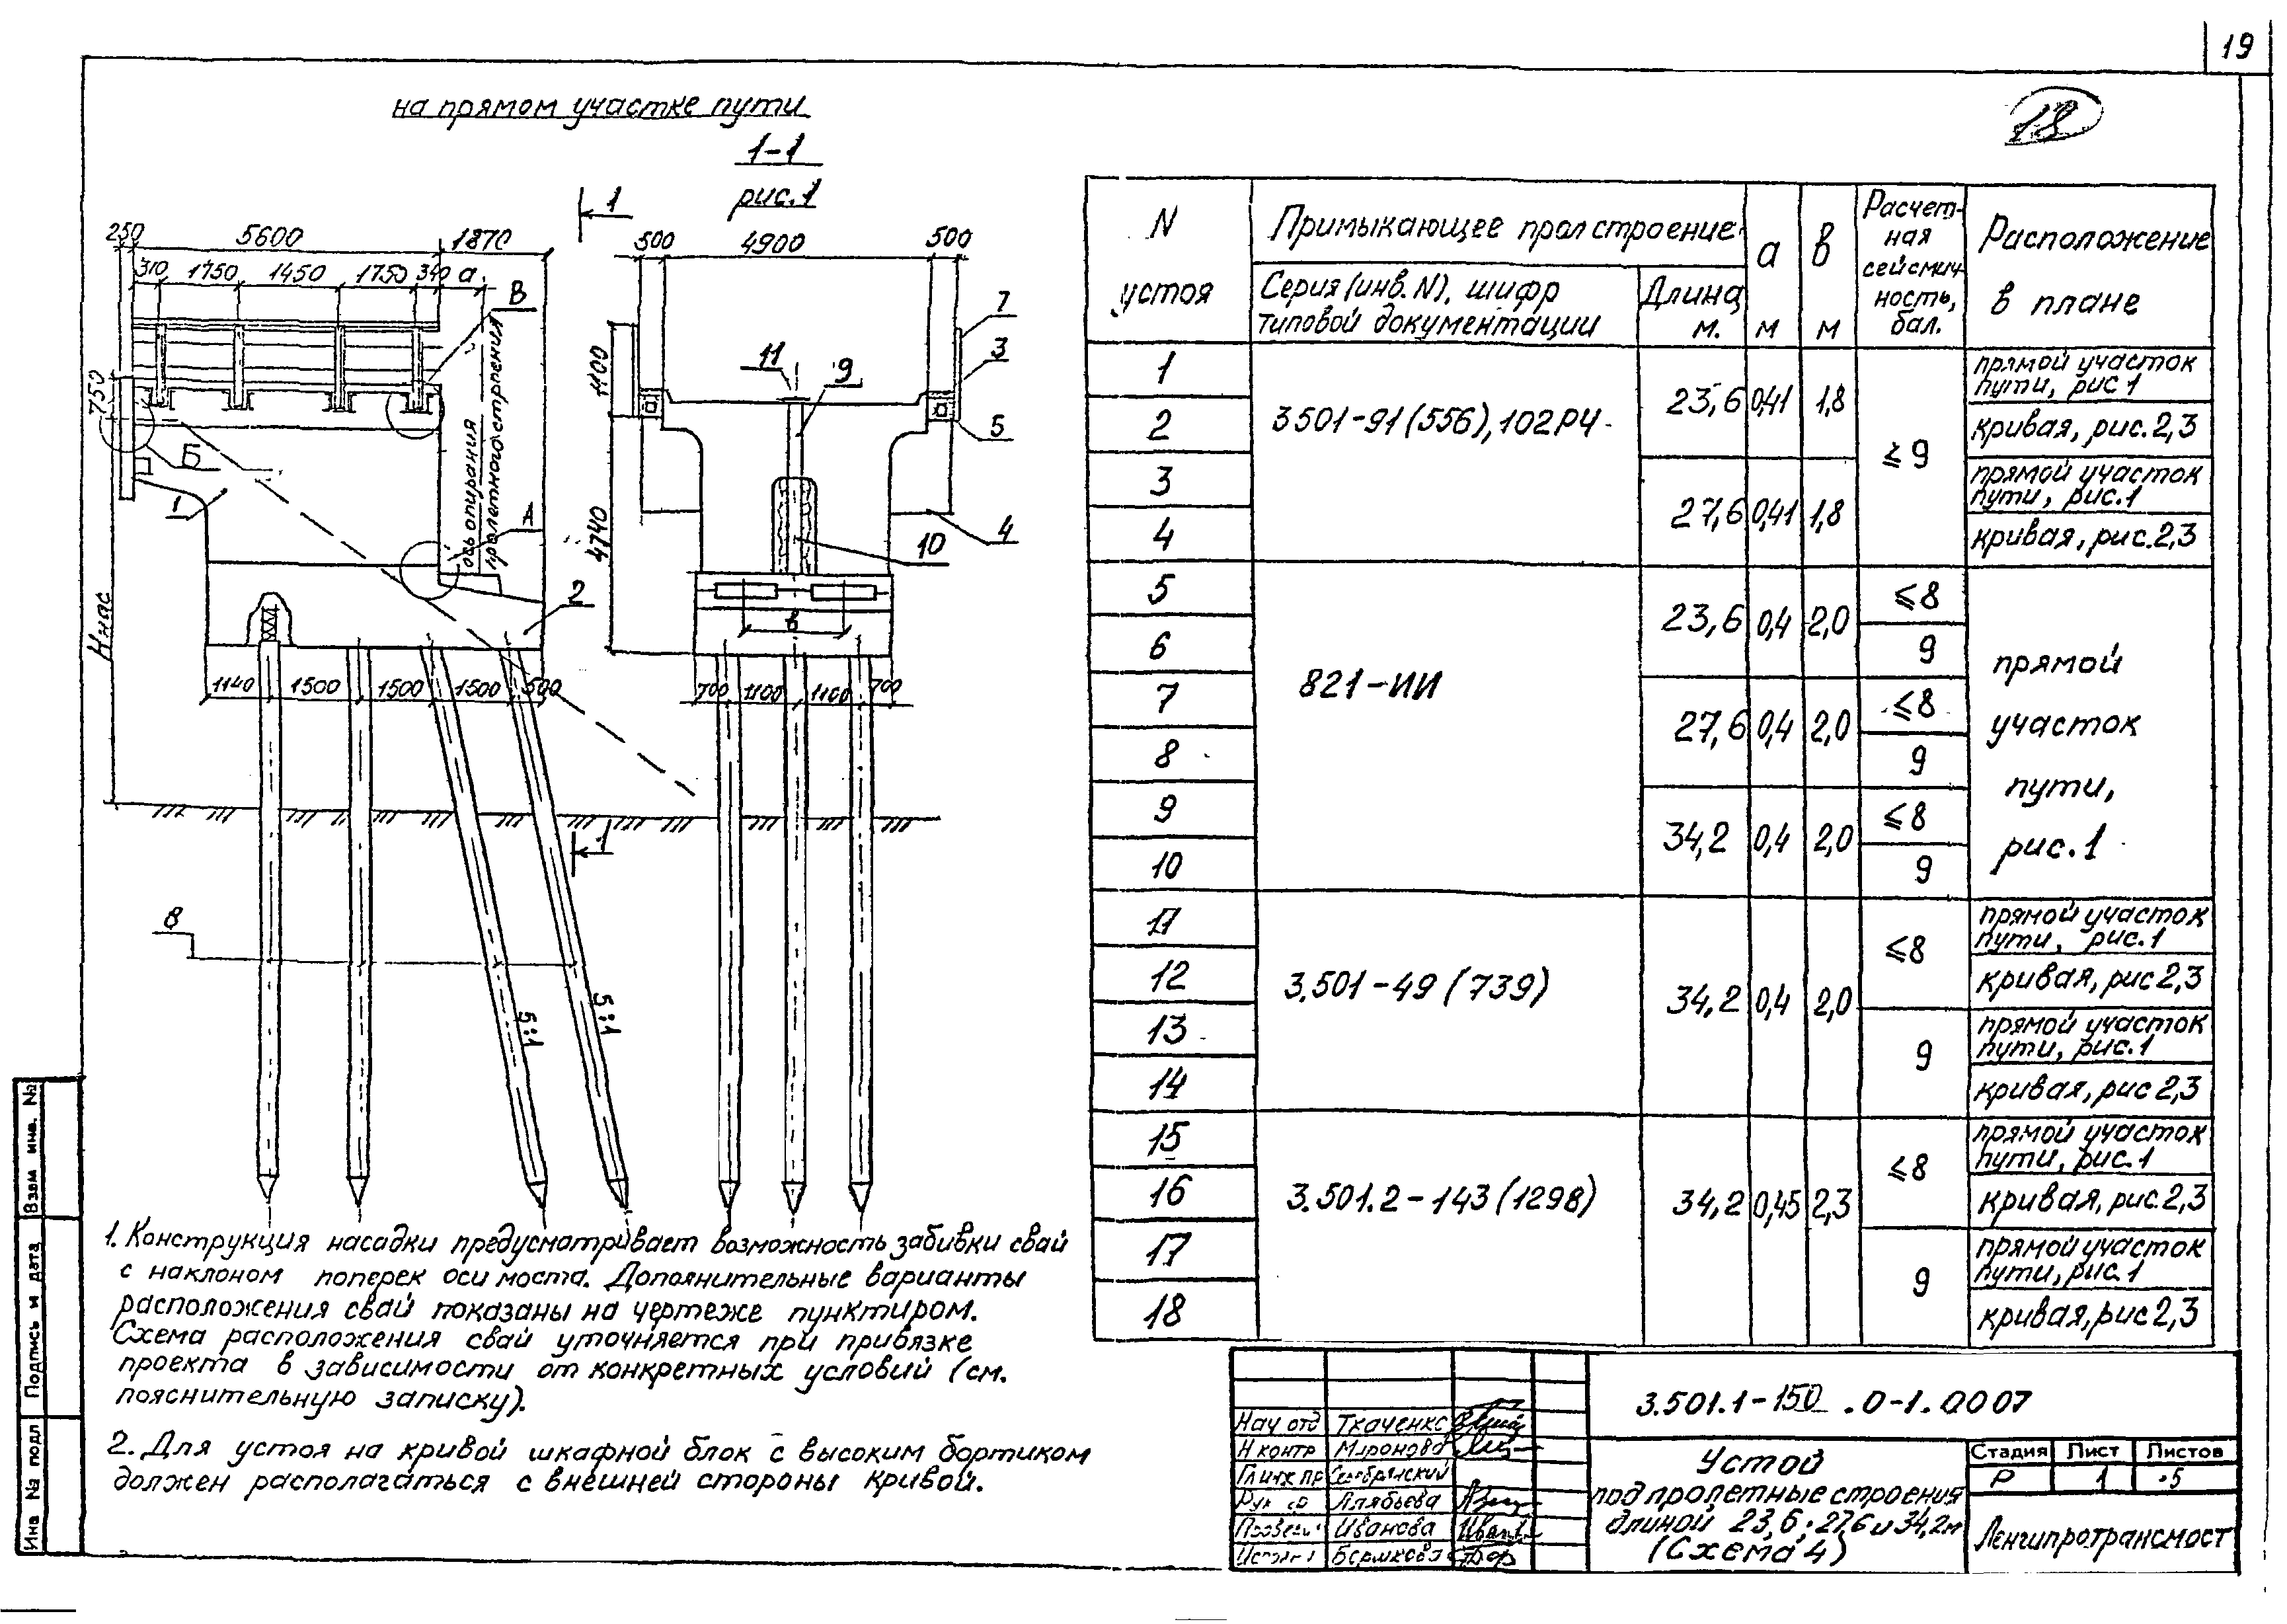 19
18
на прямом участке пути
1-1
рис. 1
1
250
5600
1870
500
4900
500
310
1750
1450
1750
340
а
В
7
3
11
9
1100
750
5
Б
ось опирания
пролетного строения
1
А
4
10
4740
2
Ннас
в
1140
1500
1500
1500
500
700
1100
1100
700
1
8
5:1
5:1
1. Конструкция насадки предусматривает возможность забивки свай
с наклоном поперек оси моста. Дополнительные варианты
расположения свай показаны на чертеже пунктиром.
Схема расположения свай уточняется при привязке
проекта в зависимости от конкретных условий (см.
пояснительную записку).
2. Для устоя на кривой шкафной блок с высоким бортиком
должен располагаться с внешней стороны кривой.
N устоя
Примыкающее прол строение
Серия (инв. N), шифр типовой документации
Длина, м.
а м
в м
Расчет-ная сейсмич-ность, бал.
Расположение в плане
1
3501-91 (556), 102РЧ
23,6 0,41 1,8
≥9
прямой участок пути, рис 1
2
кривая, рис. 2,3
3
27,6 0,41 1,8
прямой участок пути, рис. 1
4
кривая, рис. 2,3
5
821-ИИ
23,6 0,4 2,0
≤8
прямой участок пути, рис. 1
6
9
7
27,6 0,4 2,0
≤8
8
9
9
34,2 0,4 2,0
≤8
10
9
11
3.501-49 (739)
34,2 0,4 2,0
≤8
прямой участок пути, рис. 1
12
кривая, рис 2,3
13
9
прямой участок пути, рис. 1
14
кривая, рис 2,3
15
3.501.2-143 (1298)
34,2 0,45 2,3
≤8
прямой участок пути, рис. 1
16
кривая, рис. 2,3
17
9
прямой участок пути, рис. 1
18
кривая, рис 2,3
3.501.1-150 .0-1.0007
Нач отд Ткаченко
Н контр Миронова
Гл инж пр Серебрянский
Рук гр Алябьева
Провери Иванова
Исполн
Устой
под пролетные строения
длиной 23,6; 27,6 и 34,2м
(Схема 4)
Стадия Лист Листов
Р 1 5
Ленгипротрансмост
Взам инв. №
Подпись и дата
Инв № подл